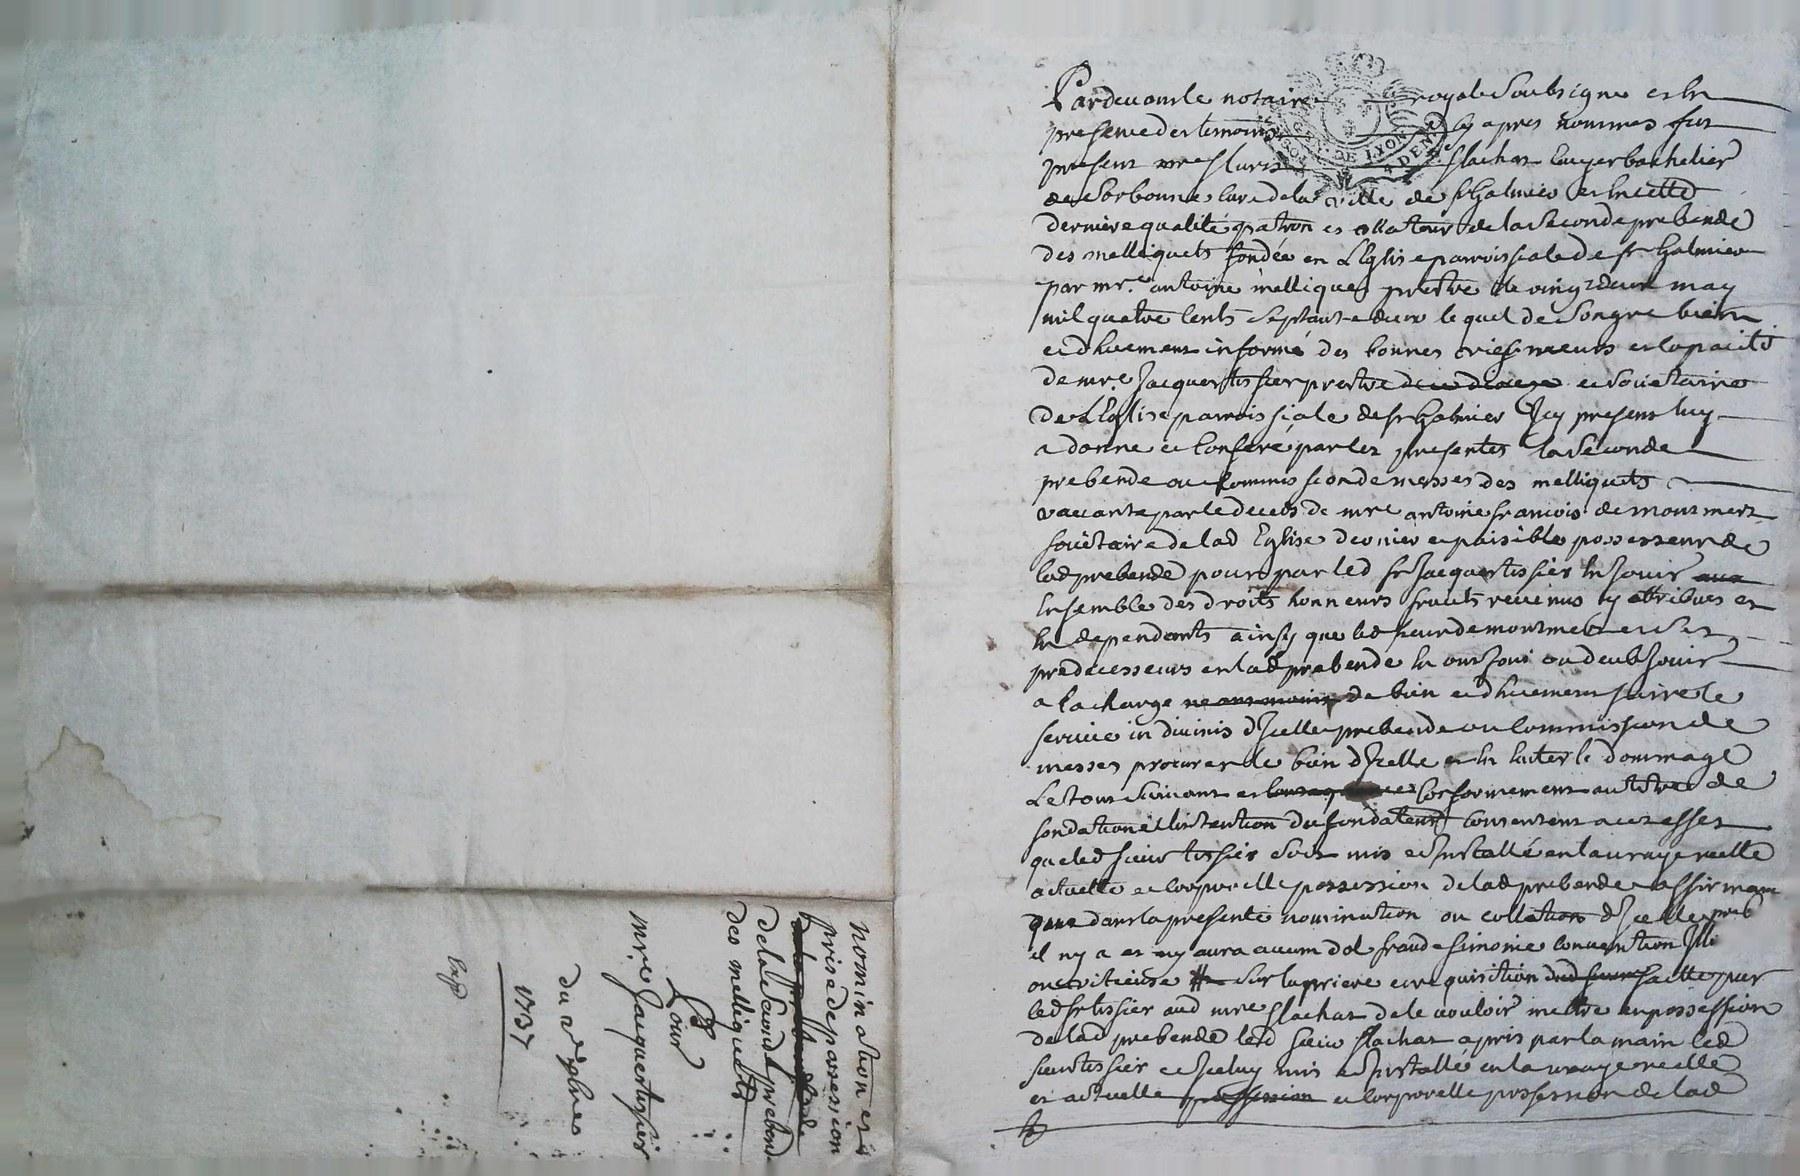 Pardevant le notaire royal soubsigne et en
presence des temoins cy apres nommes fut
present mre fleurs flachat ecuyer bachelier
de sorbonne curé de la ville de st Galmier et en cette
derniere qualité patron et collateur de la seconde prebende
des melliquets fondée en L'Eglise parroissiale de st Galmier
par mre. antoine melliquet prestre le vingt deux may
mil quatre cents septante deux le quel de son gre bien
et dhuement informé des bonnes vies mœurs et capacité
de mre. Jacques tissier prestre et societaire
de L'Eglise parroissiale de st Galmier Icy present luy
a donné et conferé par les presentes la seconde
prebende ou commission de messes des melliquets
vacante par le deceds de mre antoine francois de montmert
societaire de lad Eglise dernier et paisible possesseur de
lad prebende pour par led sr Jacques tissier en Jouir
ensemble des droits honneurs fruits revenus y attribues et
en dependants ainsy que led sieur de montmert et ses
predecesseurs en lad prebende en ont Joui ou deub Jouir
a la charge neantmoins de bien et dhuement faire le
service in divinis d'Jcelle prebende ou commission de
messes procurer le bien d'Jcelle et en eviter le dommage
Le tout suivant et conformement au titre de
fondation et l'intention du fondateur consentent a cet effet
que led sieur tissier soit mis et Installé en la vraye reelle
actuelle et corporelle possession de lad prebende affirmant
que dans la presente nomination ou collation d'Jcelle preb
il n'y a et n'y aura aucun dol fraude simonie convention Illi
ou vitieuse sur la priere et requisition faitte par
led sr tissier aud mre flachat de le vouloir mettre en possession
de lad prebende led sieur flachat a pris par la main led
sieur tissier et Jceluy mis et Installé en la vraye reelle
et actuelle possession et corporelle possession de lad
nomination et
prise de possession
de la seconde prebende
des melliquets
Pour
mre. Jacques tissier
du
1737